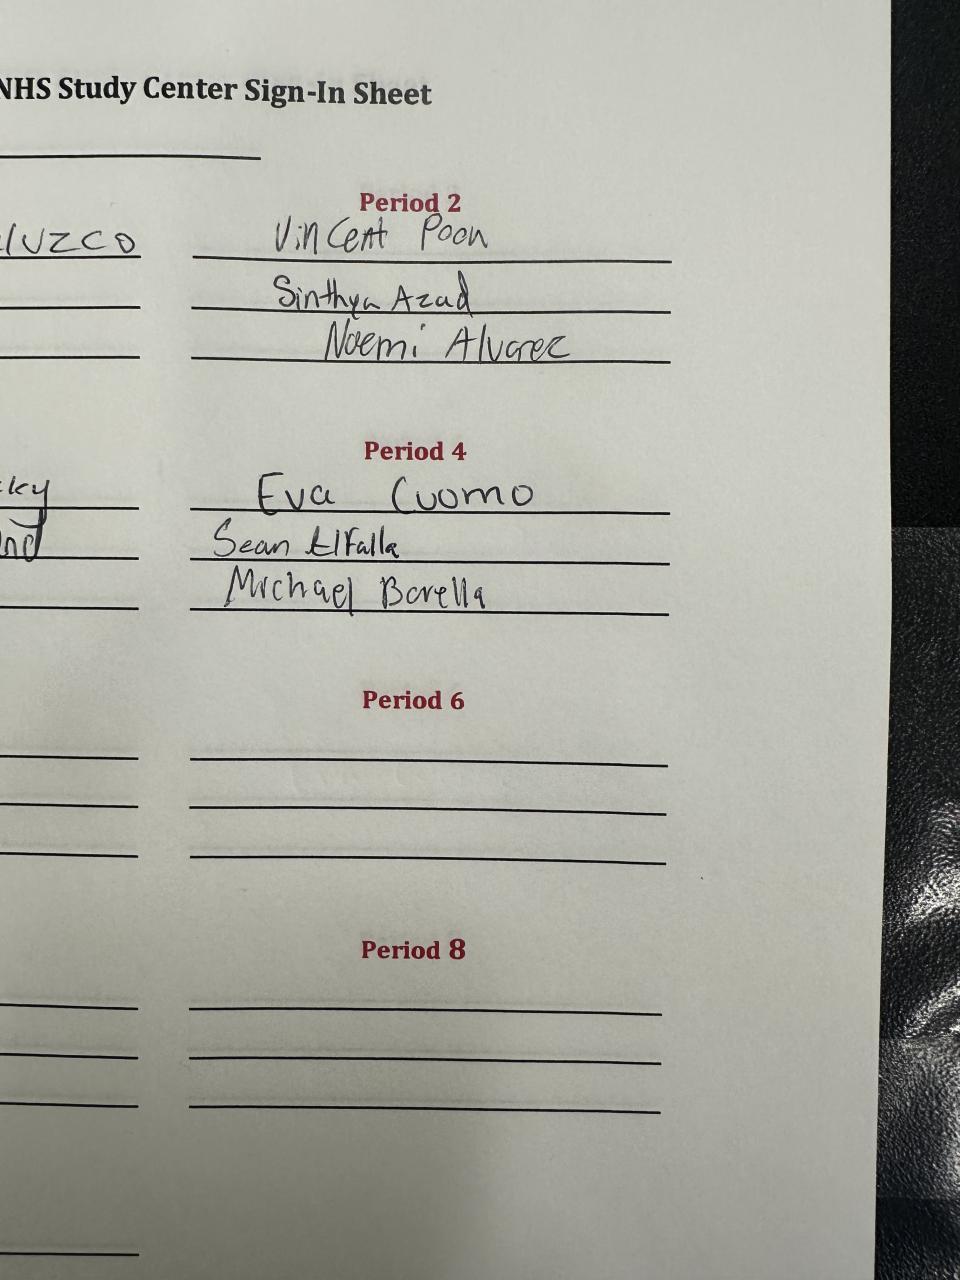 NHS Study Center Sign-In Sheet
Period 2
Vincent Poon
Sinthya Azad
Noemi Alvarez
Period 4
Eva Cuomo
Sean Elfalla
Michael Borella
Period 6
Period 8